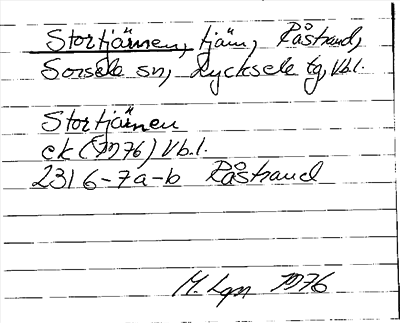 Stortjärnen, tjärn, Råstrand,
Sorsele sn, Lycksele tg, Vb.l.
Stortjärnen
ek (1976) Vb.l.
231 6-7a-b Råstrand
M. Lgn 1976